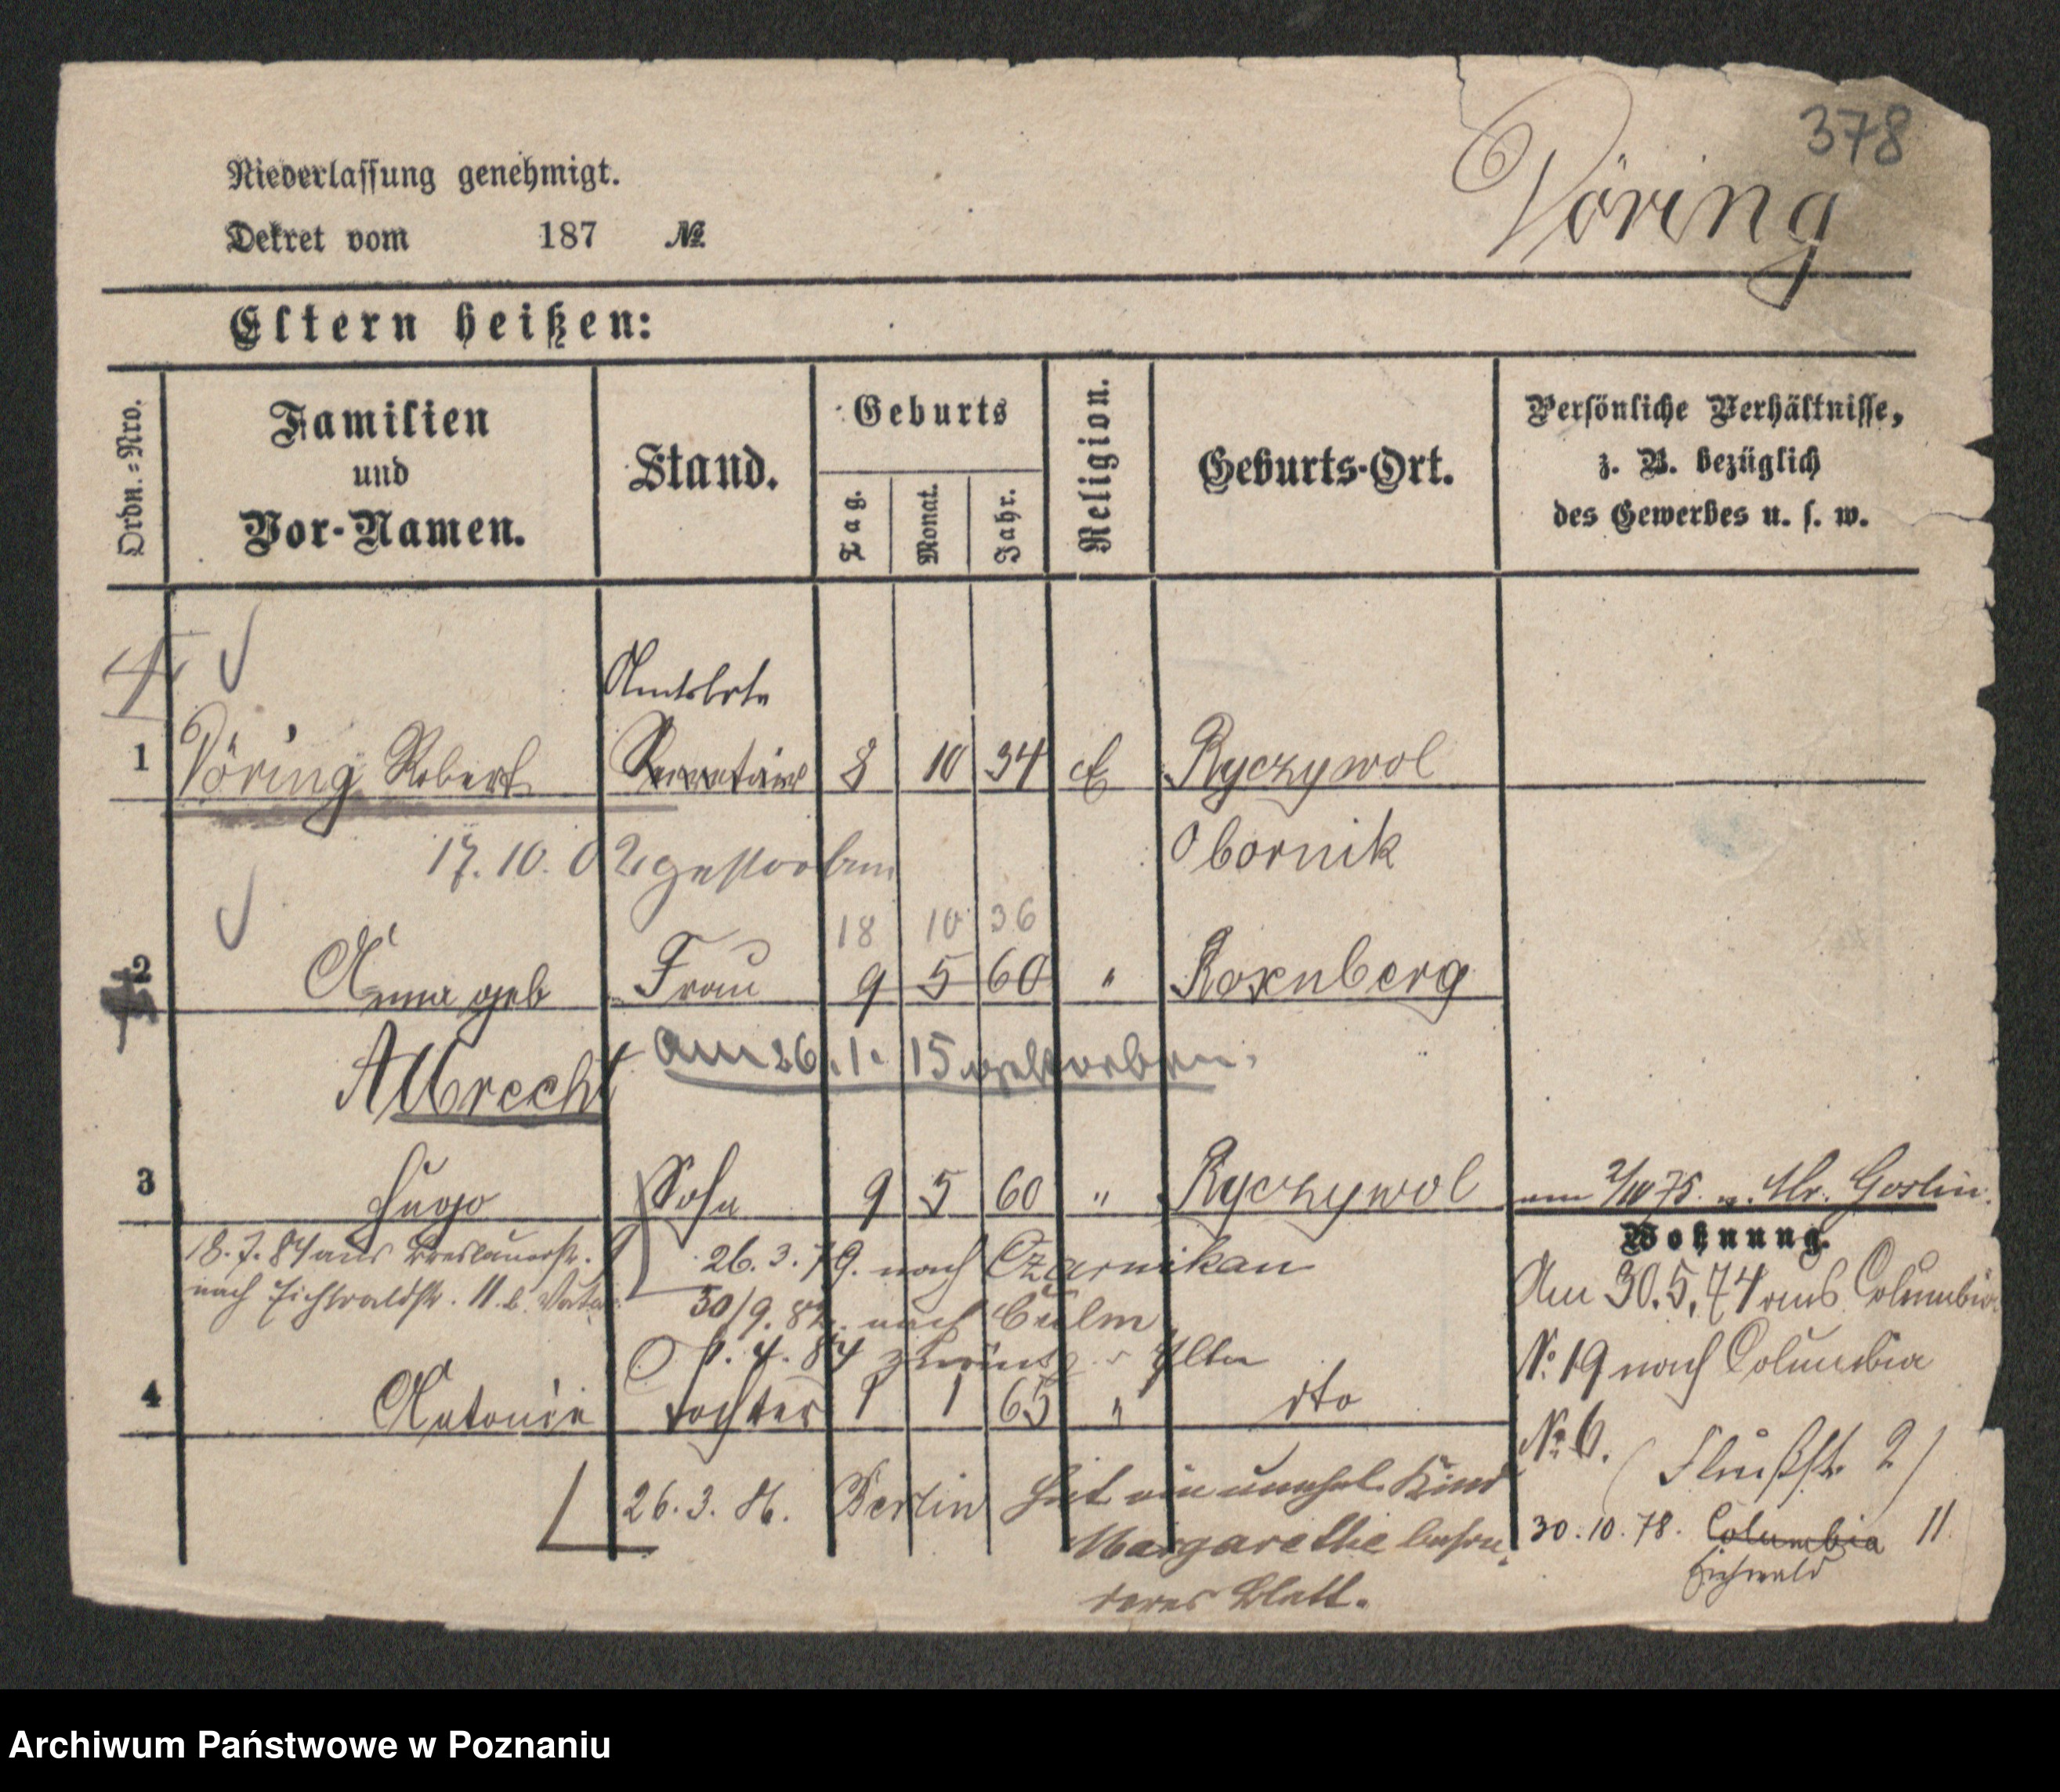 378
Vöring
Niederlassung genehmigt.
Dekret vom 187 №
Eltern heißen:
Ordn.=Nro.
Familien
und
Vor-Namen.
Stand.
Geburts
Tag.
Monat.
Jahr.
Religion.
Geburts-Ort.
Persönliche Verhältnisse,
z. B. bezüglich
des Gewerbes u. s. w.
1 Vöring Robert 8 10 34 E Ryczywol
17.10.02 gestorben Obornik
18 10 36
2 Anna geb Frau 9 5 60 " Rosenberg
Albrecht am 26.1.15 gestorben.
3 Hugo Sohn 9 5 60 " Ryczywol Mr. Goslin.
18.7.84 aus Breslauerstr. 9
nach Eichwaldstr. 11. b. Vater
26.3.79. nach Czarnikau
30/9.82. nach Culm
4 Antonie Tochter 1 1 65 " dto
26.3.86. Berlin hat ein unehel. Kind
Margarethe beson-
deres Blatt.
Wohnung.
Am 30.5.74 aus Columbia
No. 19 nach Columbia
No. 6. (Flußstr. 2)
30.10.78. Columbia 11.
Eichwald
Archiwum Państwowe w Poznaniu